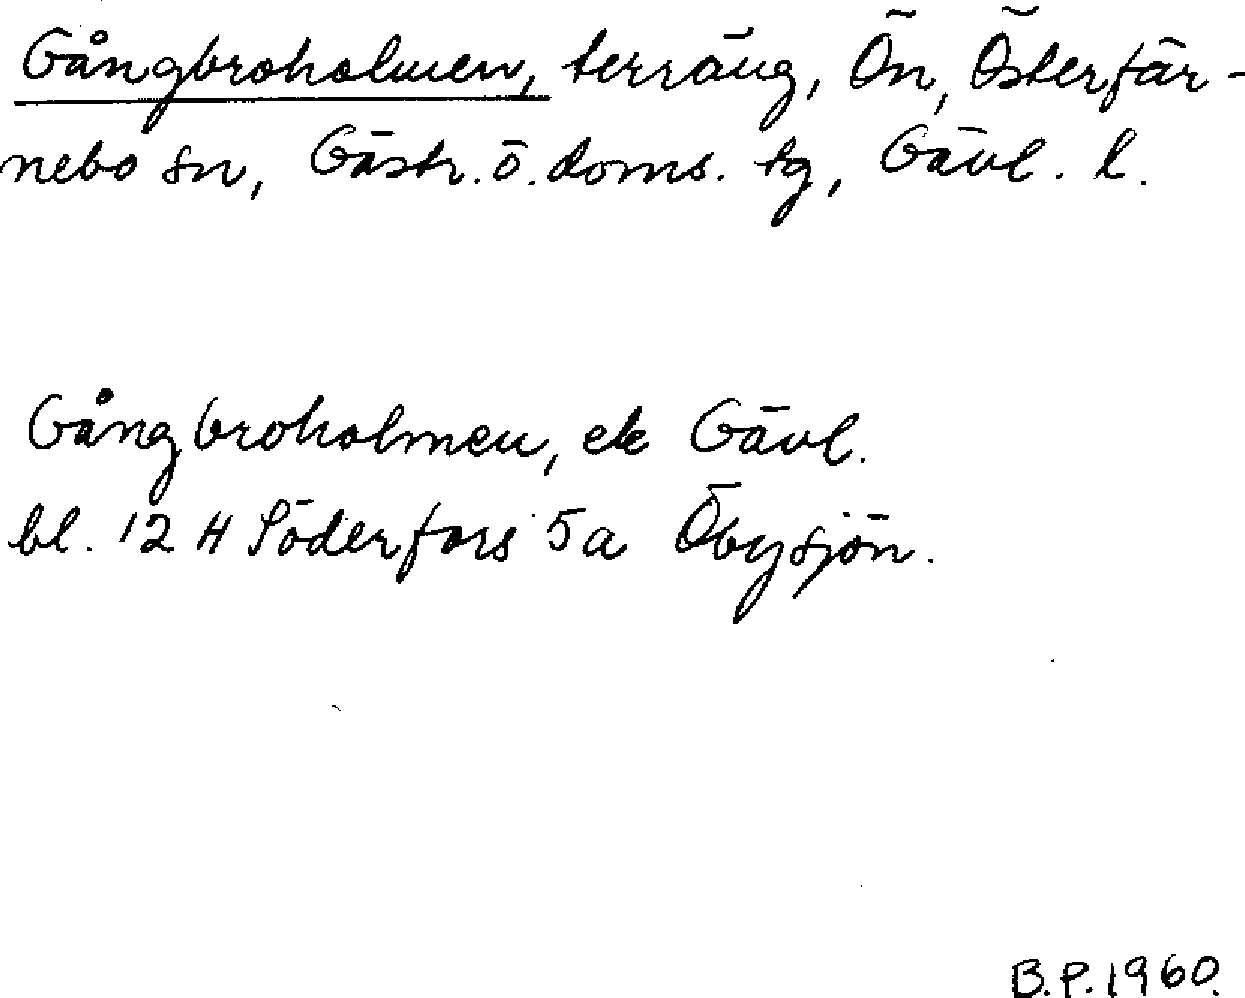 Gångbroholmen, terräng, Ön, Österfär-
nebo sn, Gästr. ö. doms. tg, Gävl. l.
Gångbroholmen, ek Gävl.
bl. 12 H Söderfors 5a Öbysjön.
B.P. 1960.